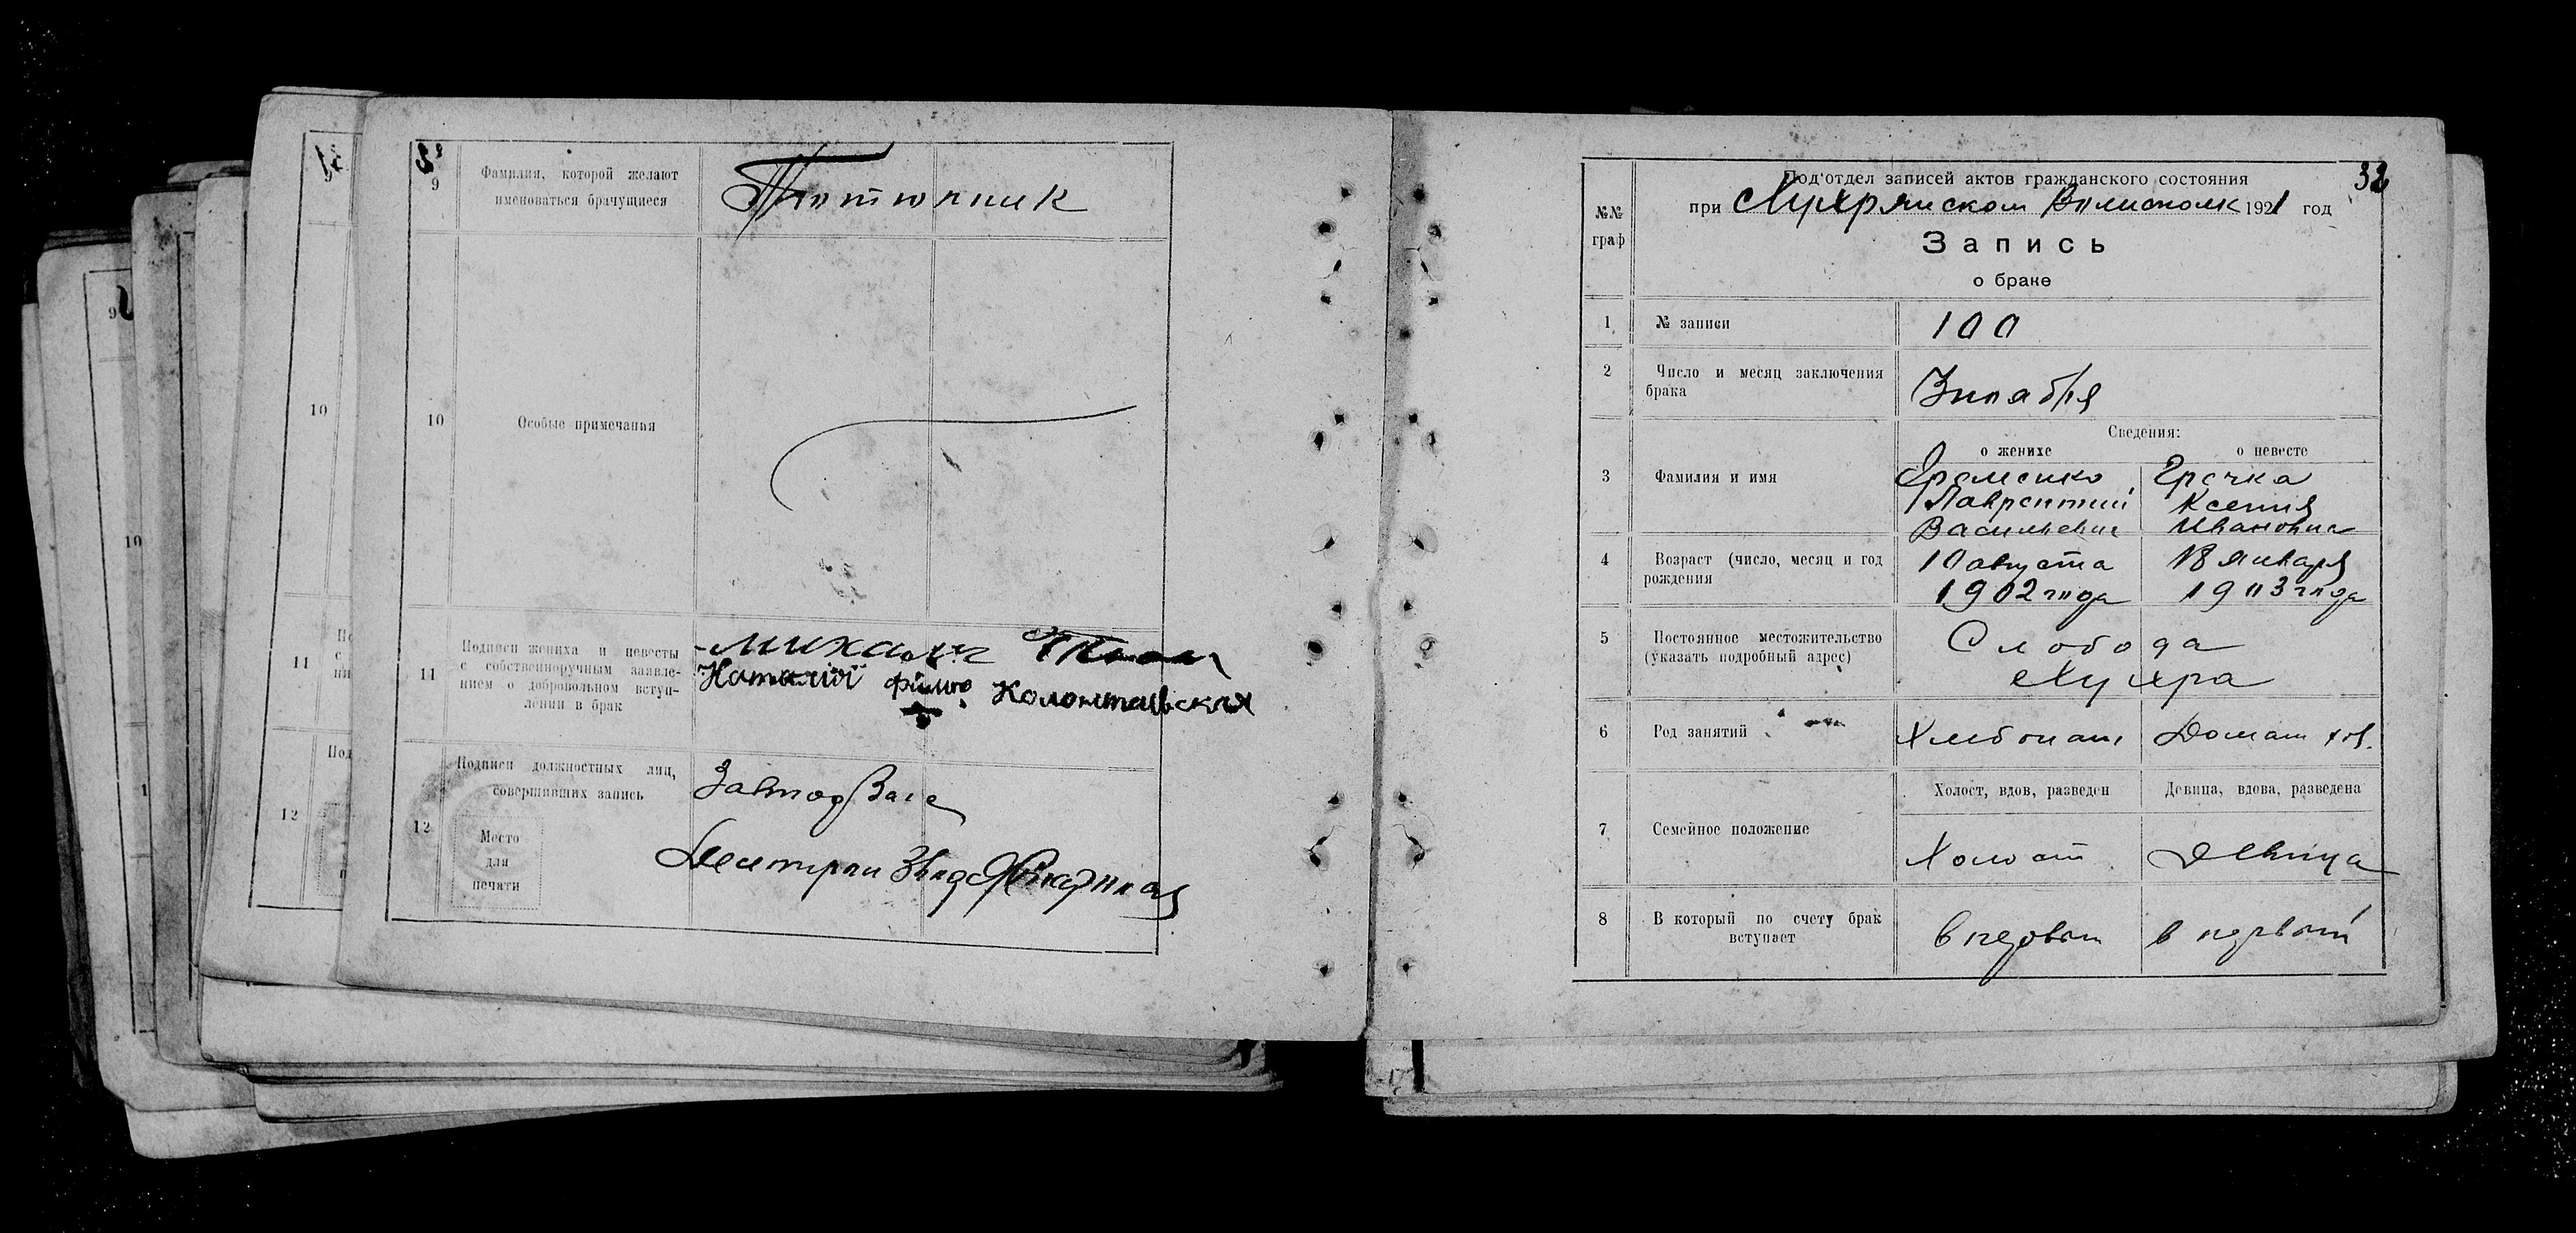 9
Фамилия, которой желают
именоваться брачущиеся
10
Особые примечания
11
Подписи жениха и невесты
с собственноручным заявле-
нием о добровольном вступ-
лении в брак
Коломтаевская
12
Подписи должностных лиц,
совершивших запись
Место
для
печати
32
№№
граф
Под'отдел записей актов гражданского состояния
при Мухрянском Волисполк 1921 год
Запись
о браке
1 № записи 100
2 Число и месяц заключения
брака
3 ноября
Сведения:
о женихе о невесте
3 Фамилия и имя
Еременко Гречка
Лаврентий Ксения
Васильевич Ивановна
4 Возраст (число, месяц и год
рождения
10 августа 18 января
1902 года 1903 года
5 Постоянное местожительство
(указать подробный адрес)
Слобода
Мухра
6 Род занятий Хлебопаш Домаш хоз.
Холост, вдов, разведен Девица, вдова, разведена
7 Семейное положение
Холост Девица
8 В который по счету брак
вступает
в первый в первый
9
10
11
12
9
10